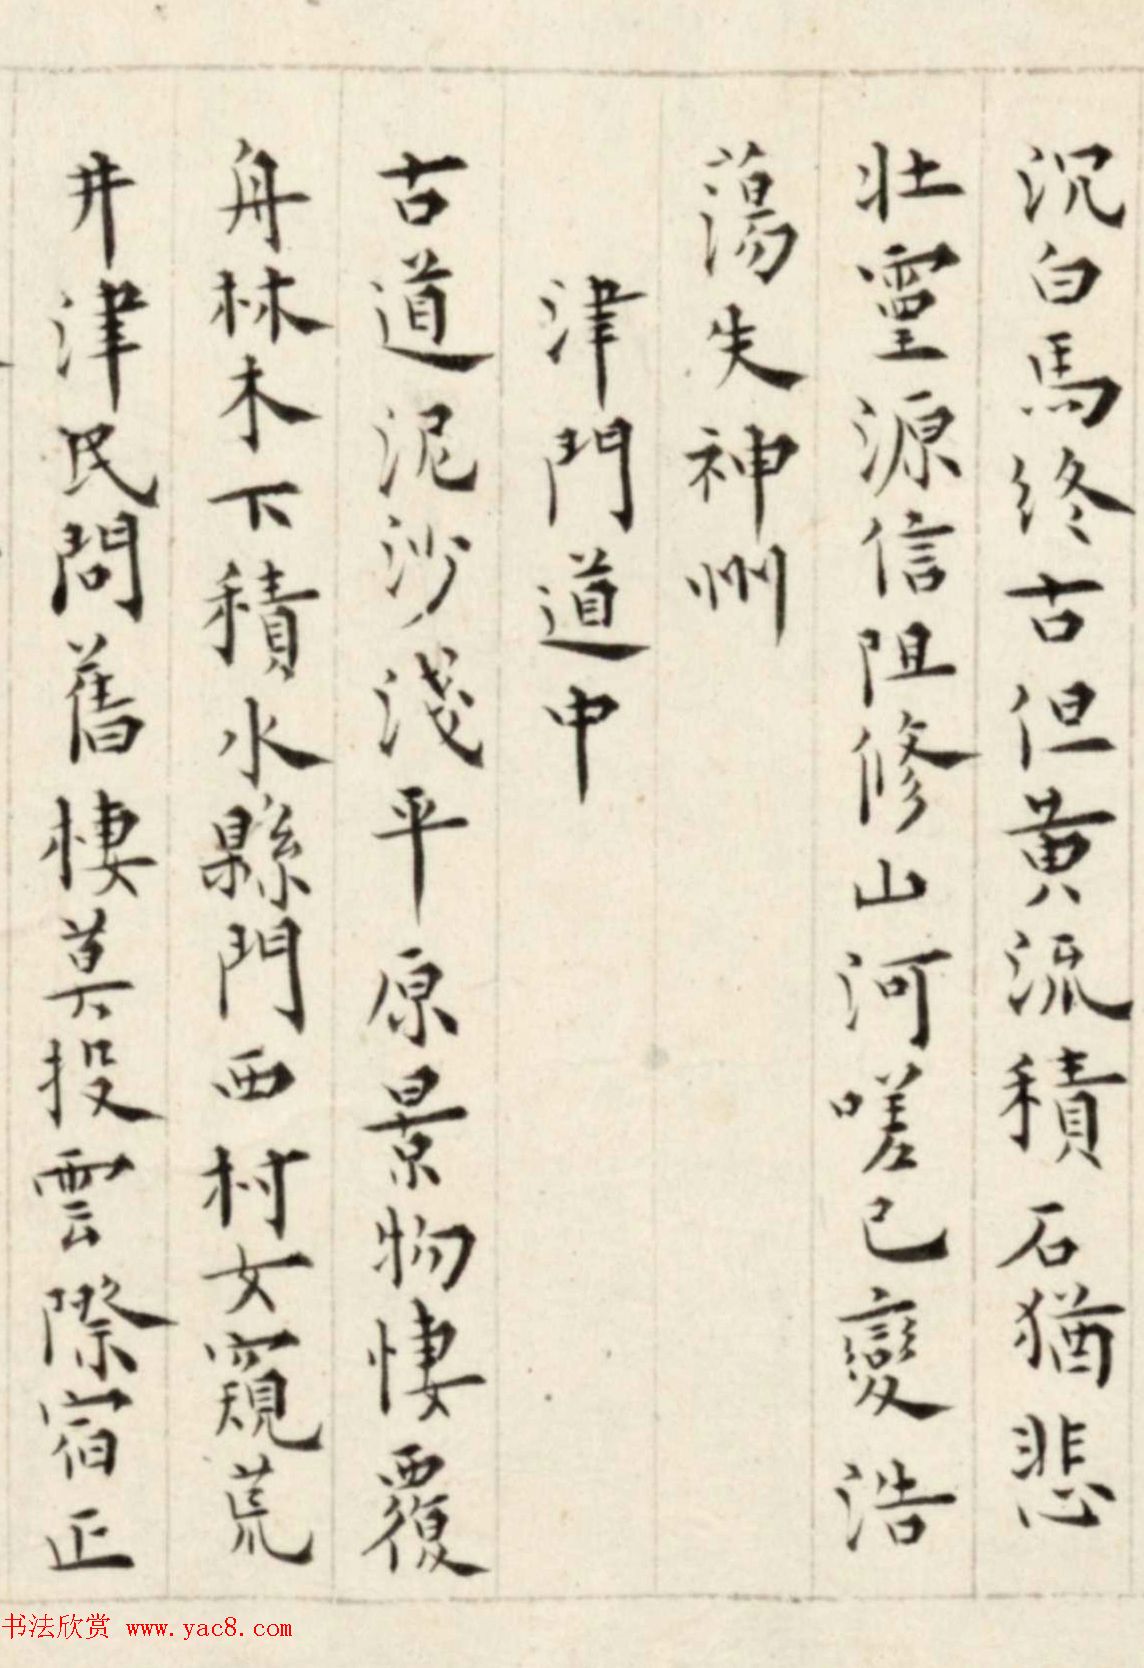 沉白馬終古但黃流積石猶悲
壯靈源信阻修山河嗟已變浩
蕩失神州
津門道中
古道泥沙淺平原景物悽覆
舟林木下積水縣門西村女窺荒
井津民問舊悽莫投雲際宿正
书法欣赏 www.yac8.com